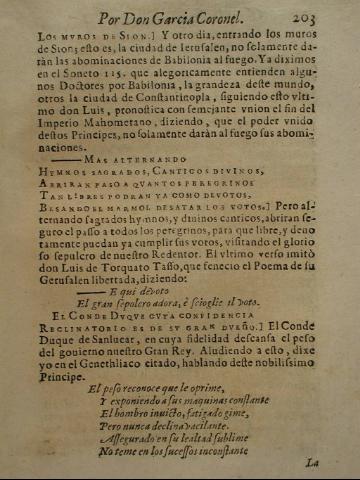 Por Don Garcia Coronel. 203
LOS MVROS DE SION.] Y otro dia, entrando los muros
de Sion; esto es, la ciudad de Ierusalen, no solamente da-
ràn las abominaciones de Babilonia al fuego. Ya diximos
en el Soneto 115. que alegoricamente entienden algu-
nos Doctores por Babilonia, la grandeza deste mundo,
otros la ciudad de Constantinopla, siguiendo esto vlti-
mo don Luis, pronostica con semejante vnion el fin del
Imperio Mahometano, diziendo, que el poder vnido
destos Principes, no solamente daràn al fuego sus abomi-
naciones.
MAS ALTERNANDO
HYMNOS SAGRADOS, CANTICOS DIVINOS,
ABRIRAN PASO A QVANTOS PEREGRINOS
TAN LIBRES PODRAN YA COMO DEVOTOS,
BESANDO EL MARMOL DESATAR LOS VOTOS.] Pero al-
ternando sagrados hymnos, y diuinos canticos, abriran se-
guro el passo a todos los peregrinos, para que libre, y deuo
tamente puedan ya cumplir sus votos, visitando el glorio
so sepulcro de nuestro Redentor. El vltimo verso imitò
don Luis de Torquato Tasso, que fenecio el Poema de su
Gerusalen libertada, diziendo:
E qui devoto
El gran sepolcro adora, è scioglie il voto.
EL CONDE DVQVE CVYA CONFIDENCIA
RECLINATORIO ES DE SV GRAN DVEÑO.] El Conde
Duque de Sanlucar, en cuya fidelidad descansa el peso
del gouierno nuestro Gran Rey. Aludiendo a esto, dixe
yo en el Genethliaco citado, hablando deste nobilissimo
Principe.
El peso reconoce que le oprime,
Y exponiendo a sus maquinas constante
El hombro inuicto, fatigado gime,
Pero nunca declina vacilante.
Assegurado en su lealtad sublime
No teme en los sucessos inconstante
La